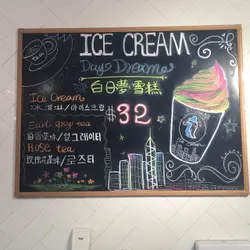 ICE CREAM
Day Dreams
白日夢雪糕
Ice Cream
$32
Earl grey tea
伯爵茶味/얼그레이티
ROSE tea
玫瑰花茶味/로즈티